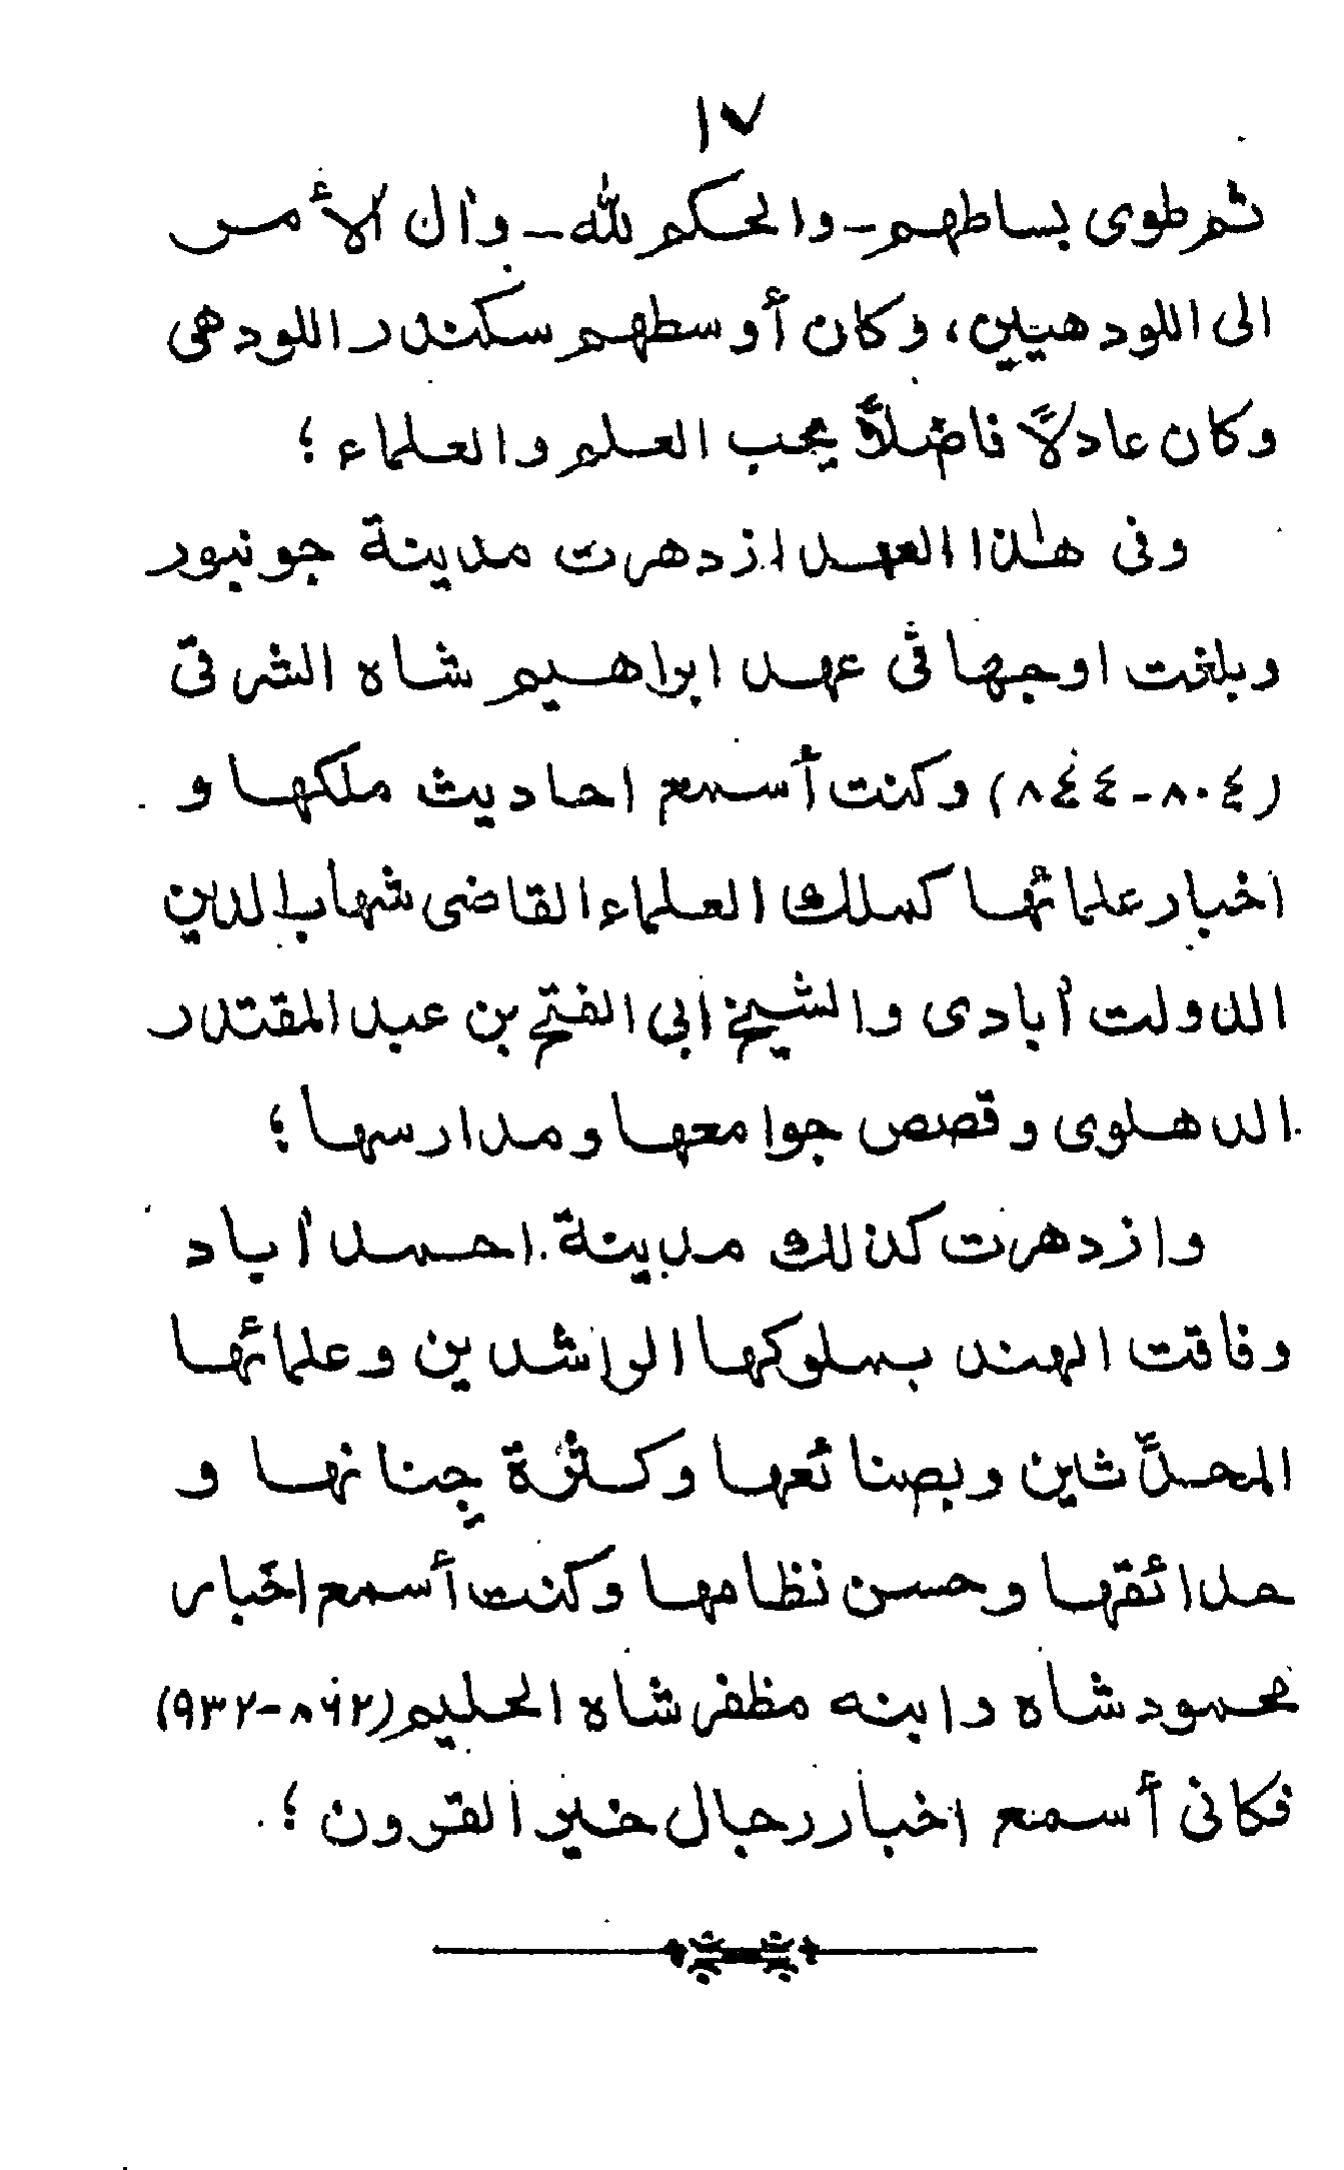 ١٧
ثم طوى بساطهم ـ والحكم لله ـ وآل الأمر
الى اللودهيين، وكان أوسطهم سكندر اللودهى
وكان عادلاً فاضلاً يحب العلم والعلماء ؛
وفى هٰذا العهد ازدهرت مدينة جونبور
وبلغت اوجها فى عهد ابراهيم شاه الشرقى
(٨٠٤ - ٨٤٤) وكنت أسمع احاديث ملكها و
اخبار علمائها كملك العلماء القاضى شهاب الدين
الدولت آبادى والشيخ ابى الفتح بن عبد المقتدر
الدهلوى وقصص جوامعها ومدارسها ؛
وازدهرت كذالك مدينة احمد آباد
وفاقت الهند بملوكها الراشدين وعلمائها
المحدّثين وبصنائعها وكثرة جناتها و
حدائقها وحسن نظامها وكنت أسمع اخبار
محمود شاه وابنه مظفر شاه الحليم (٨٦٢-٩٣٢)
فكانى أسمع اخبار رجال خير القرون ؛